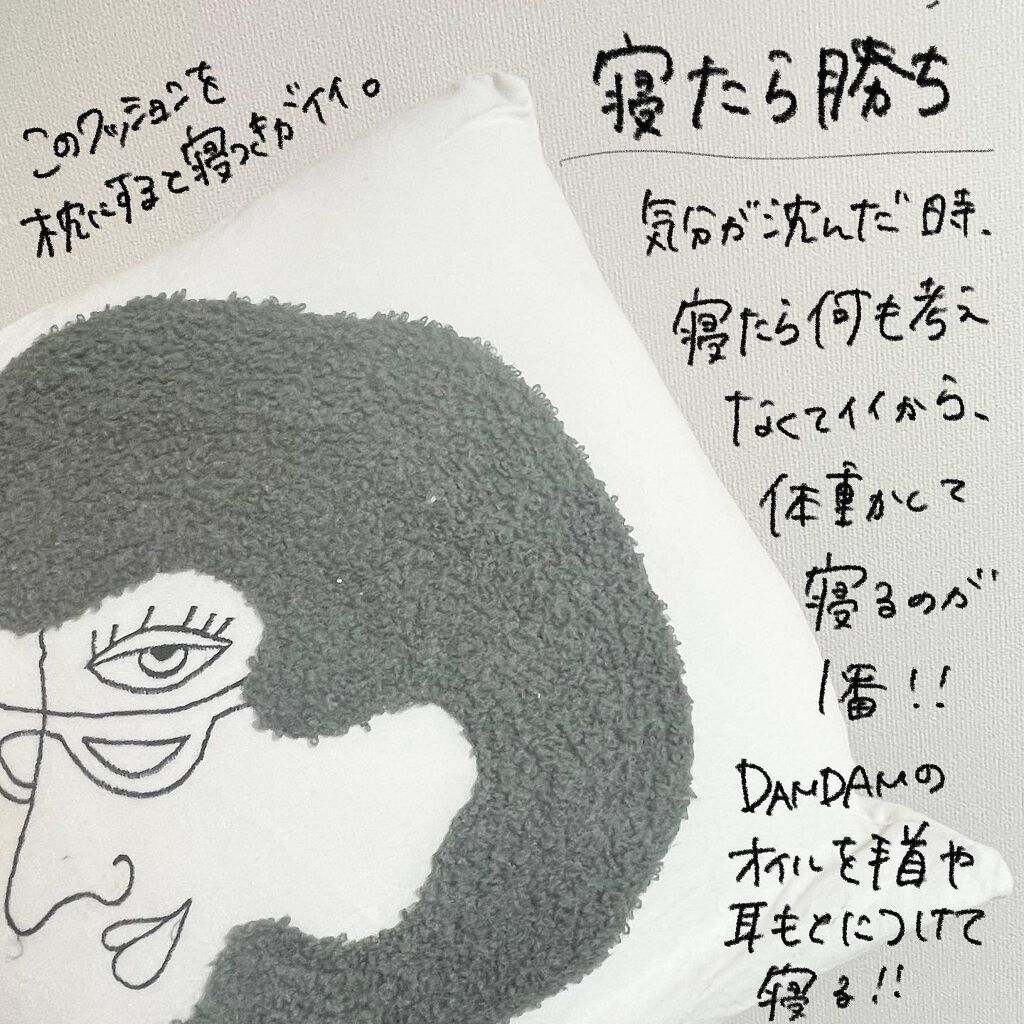 寝たら勝ち
このクッションを
枕にすると寝つきがイイ。
気分が沈んだ時、
寝たら何も考え
なくてイイから、
体重かくして
寝るのが
1番!!
DAMDAMの
オイルを手首や
耳もとにつけて
寝る!!